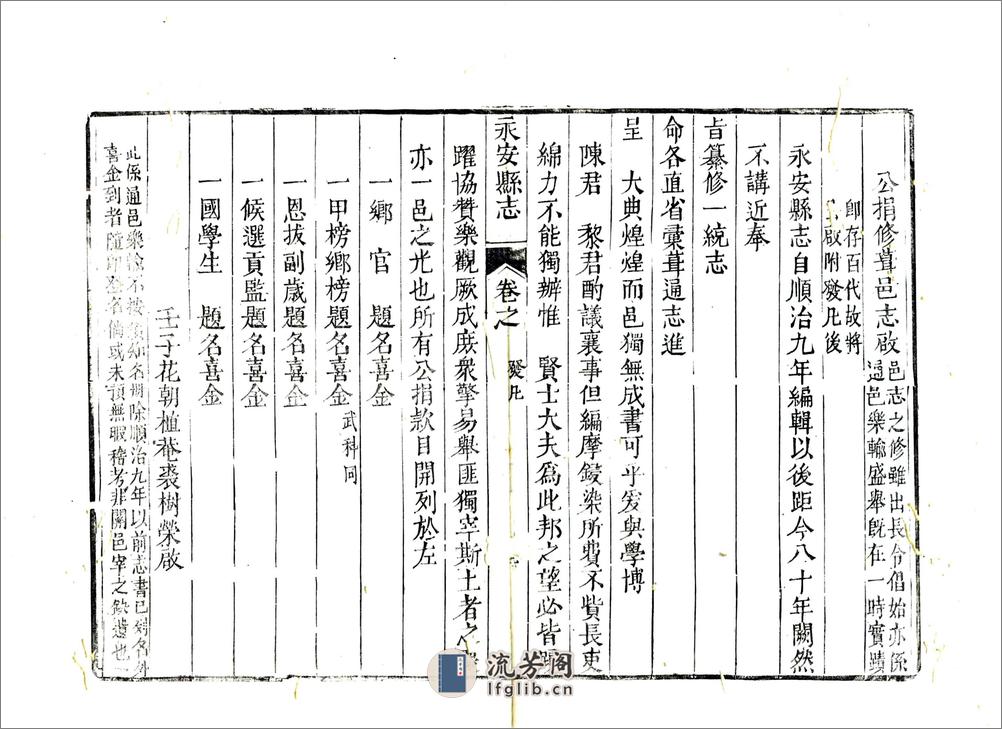 公捐修葺邑志啟 邑志之修雖出長令倡始亦係
這邑樂輸盛舉既在一時實蹟
即存百代故將
啟附發凡後
永安縣志自順治九年編輯以後距今八十年闕然
不講近奉
旨纂修一統志
命各直省彙葺通志進
呈 大典煌煌而邑獨無成書可乎爰與學博
陳君 黎君酌議襄事但編摩鋟染所費不貲長吏
綿力不能獨辦惟 賢士大夫為此邦之望必皆
永安縣志 卷之 發凡
躍協贊樂觀厥成庶衆擎易舉匪獨宰斯土者之
亦一邑之光也所有公捐款目開列於左
一鄉 官 題名喜金
一甲榜鄉榜題名喜金 武科同
一恩拔副歲題名喜金
一候選貢監題名喜金
一國學生 題名喜金
壬子花朝植菴裘樹榮啟
此係通邑樂 不 名 除順治九年以前志書已 名
喜金到者隨即 名倘或未 無暇稽考非關邑宰之缺遺也
流芳阁
lfglib.cn